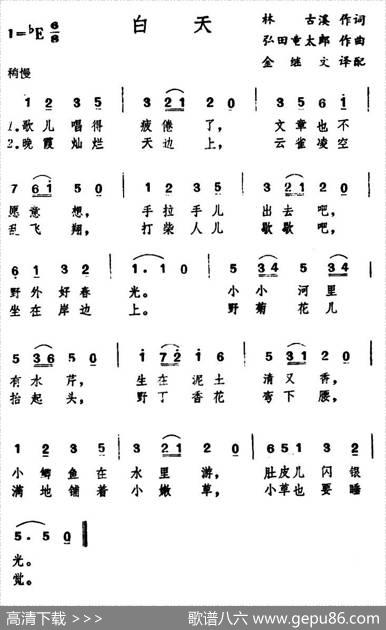 白天
1=♭E 6/8
林 古溪 作词
弘田竜太郎 作曲
金继文 译配
稍慢
1 2 3 5 | 3 2 1 2 0 | 3 5 6 1
1.歌儿唱得 疲倦了， 文章也不
2.晚霞灿烂 天边上， 云雀凌空
7 6 1 5 0 | 1 2 3 5 | 3 2 1 2 0
愿意想， 手拉手儿 出去吧，
乱飞翔， 打柴人儿 歇歇吧，
6 1 3 2 | 1. 1 0 | 5 3 4 5 3 4
野外好春 光。 小小河里
坐在岸边 上。 野菊花儿
5 3 6 5 0 | 1 7 2 1 6 | 5 3 1 2 0
有水芹， 生在泥土 清又香，
抬起头， 野丁香花 弯下腰，
1 2 3 5 | 3 2 1 2 0 | 6 5 1 3 2
小鲫鱼在 水里游， 肚皮儿闪银
满地铺着 小嫩草， 小草也要睡
5. 5 0
光。
觉。
高清下载 >>>
歌谱八六 — www.gepu86.com